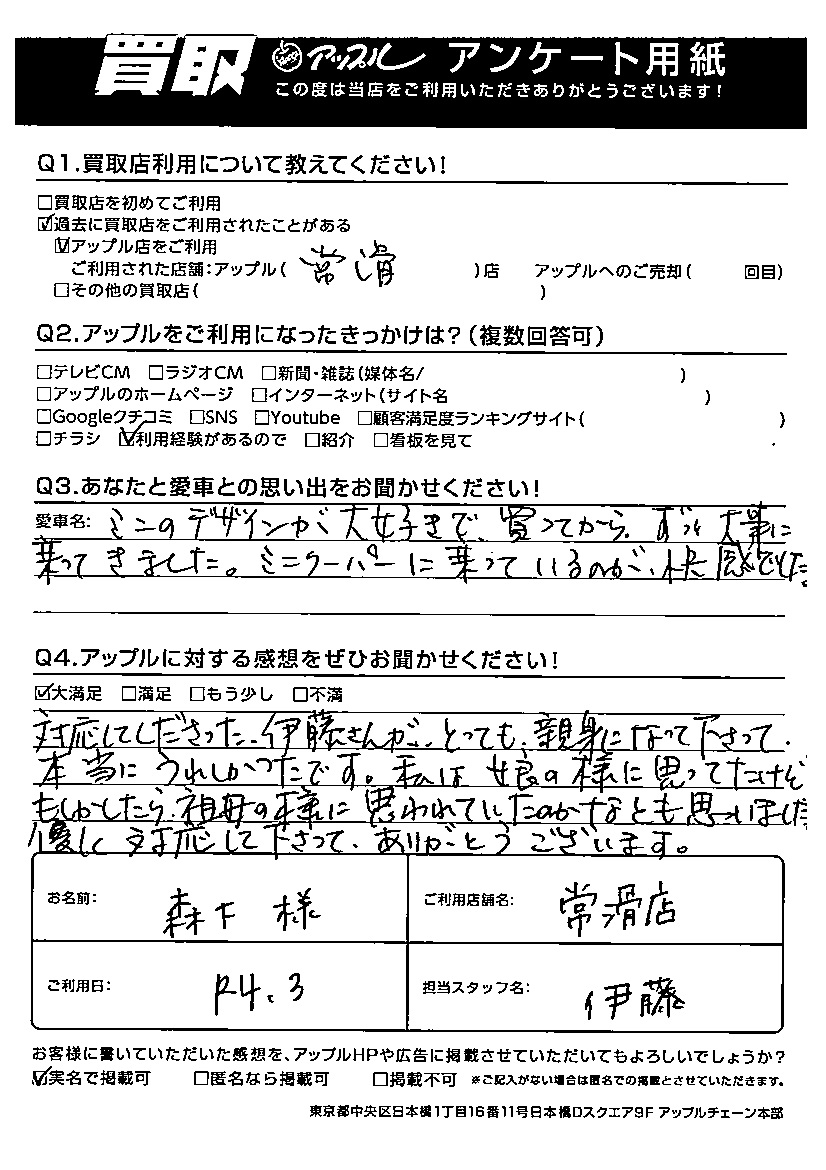 買取 アップル アンケート用紙
この度は当店をご利用いただきありがとうございます!
Q1.買取店利用について教えてください!
□買取店を初めてご利用
☑過去に買取店をご利用されたことがある
☑アップル店をご利用
ご利用された店舗:アップル( 常滑 )店 アップルへのご売却( 回目)
□その他の買取店( )
Q2.アップルをご利用になったきっかけは?(複数回答可)
□テレビCM □ラジオCM □新聞・雑誌(媒体名/ )
□アップルのホームページ □インターネット(サイト名 )
□Googleクチコミ □SNS □Youtube □顧客満足度ランキングサイト( )
□チラシ ☑利用経験があるので □紹介 □看板を見て
Q3.あなたと愛車との思い出をお聞かせください!
愛車名: ミニのデザインが大好きで、買ってから、ずっと大事に
乗ってきました。ミニクーパーに乗っているのが、快感でした
Q4.アップルに対する感想をぜひお聞かせください!
☑大満足 □満足 □もう少し □不満
対応してくださった、伊藤さんが、とっても、親身になって下さって、
本当にうれしかったです。私は娘の様に思ってたけど
もしかしたら、祖母の様に思われていたのかなとも思いました
優しく対応して下さって、ありがとうございます。
お名前: 森下 様 ご利用店舗名: 常滑店
ご利用日: R4.3 担当スタッフ名: 伊藤
お客様に書いていただいた感想を、アップルHPや広告に掲載させていただいてもよろしいでしょうか?
☑実名で掲載可 □匿名なら掲載可 □掲載不可 ※ご記入がない場合は匿名での掲載とさせていただきます。
東京都中央区日本橋1丁目16番11号日本橋Dスクエア9F アップルチェーン本部